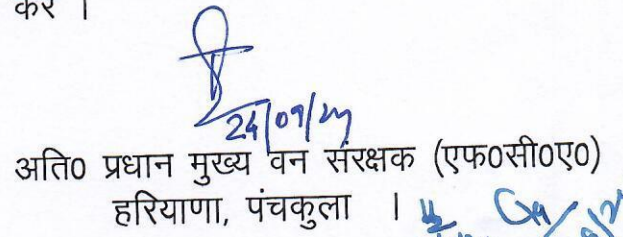 करे ।
24/09/24
अति० प्रधान मुख्य वन संरक्षक (एफ०सी०ए०)
हरियाणा, पंचकुला ।